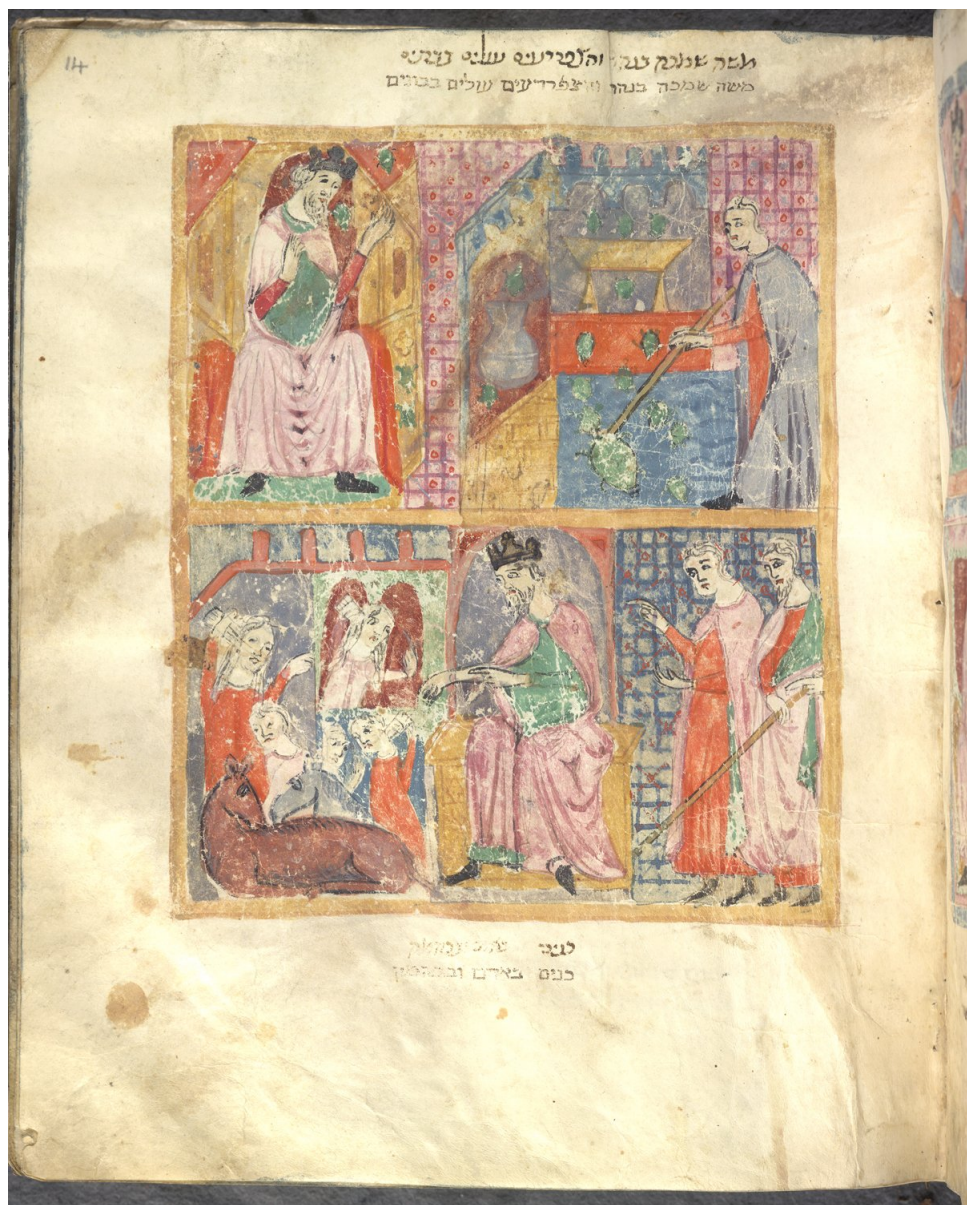 14
משה שמכה בנהר והצפרדעים עולים
משה שמכה בנהר והצפרדעים עולים בבתים
כנים
כנים באדם ובבהמה